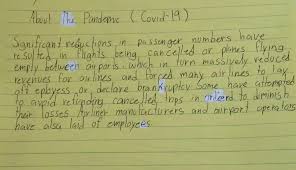 About The Pandemic (Covid-19)
Significant reductions in passenger numbers have
resulted in flights being cancelled or planes flying
empty between airports. which in turn massively reduced
revenues for airlines and forced many airlines to lay
off employess or declare bankruptcy Some have attempted
to avoid refunding cancelled trips in order to diminish
their losses Airliner manufacturers and airport operators
have also laid of employees.